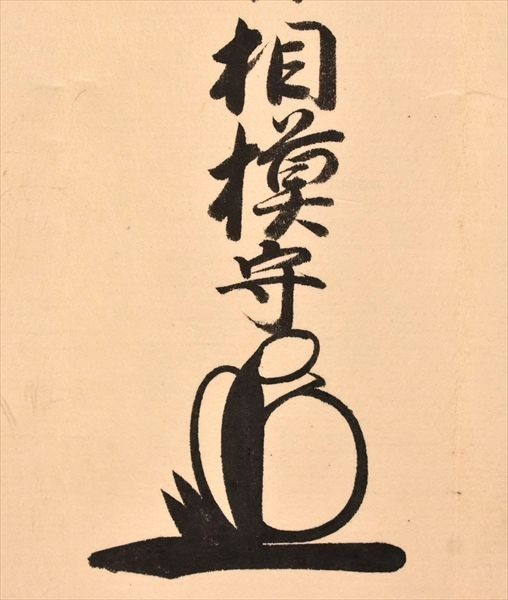 相模守